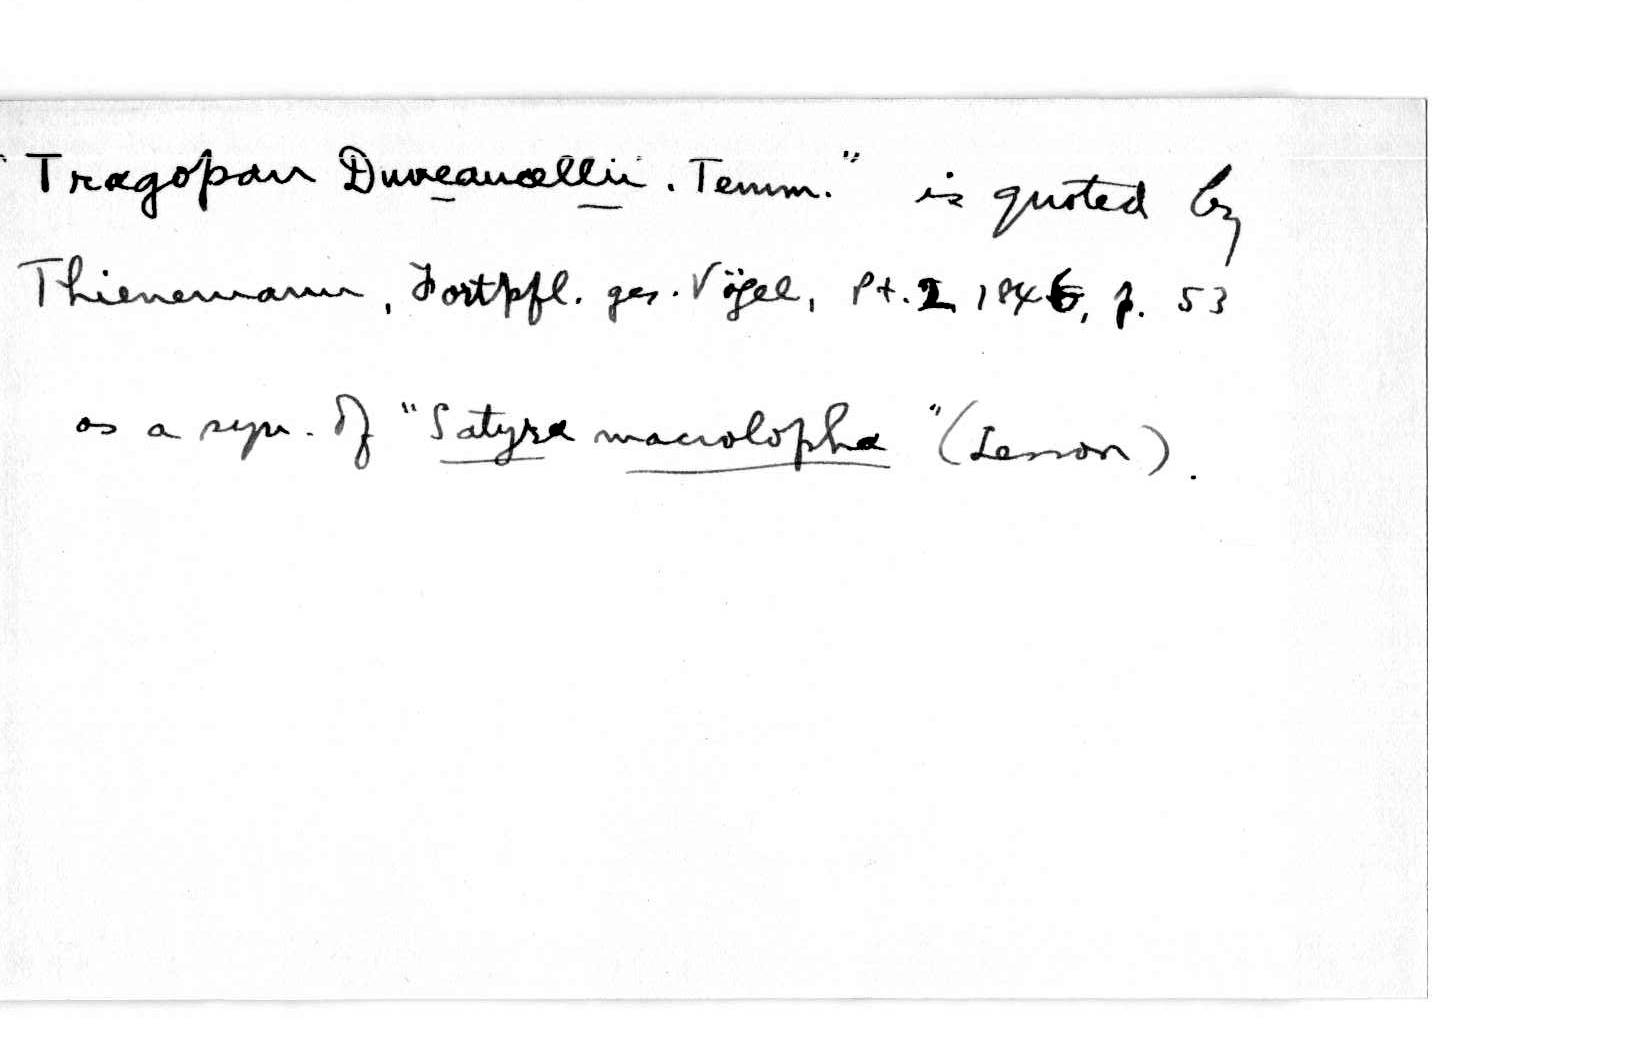 "Tragopan Duveaucellii. Temm." is quoted by
Thienemann, Fortpfl. ges. Vögel, Pt. 2 1846, p. 53
as a syn. of "Satyra macrolopha" (Lesson).